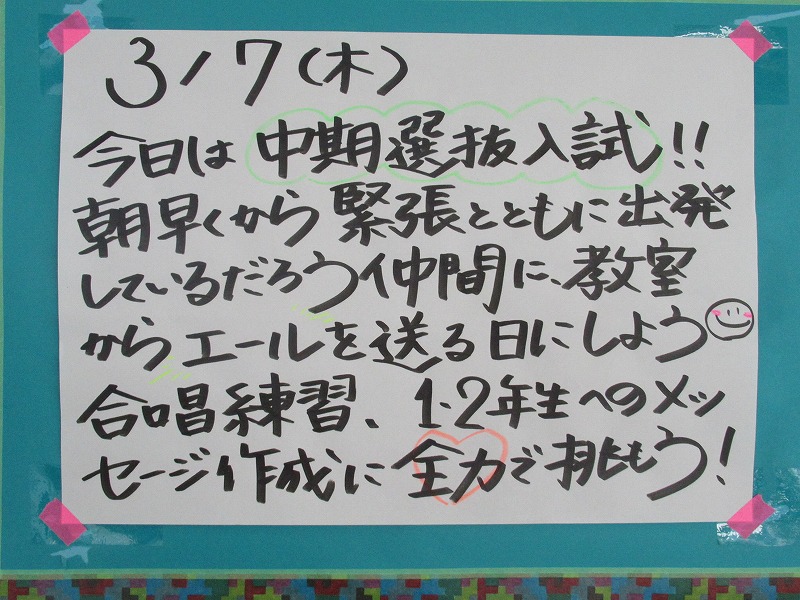 3/7(木)
今日は中期選抜入試!!
朝早くから緊張とともに出発
しているだろう仲間に、教室
からエールを送る日にしよう
合唱練習、1・2年生へのメッ
セージ作成に全力で挑もう!